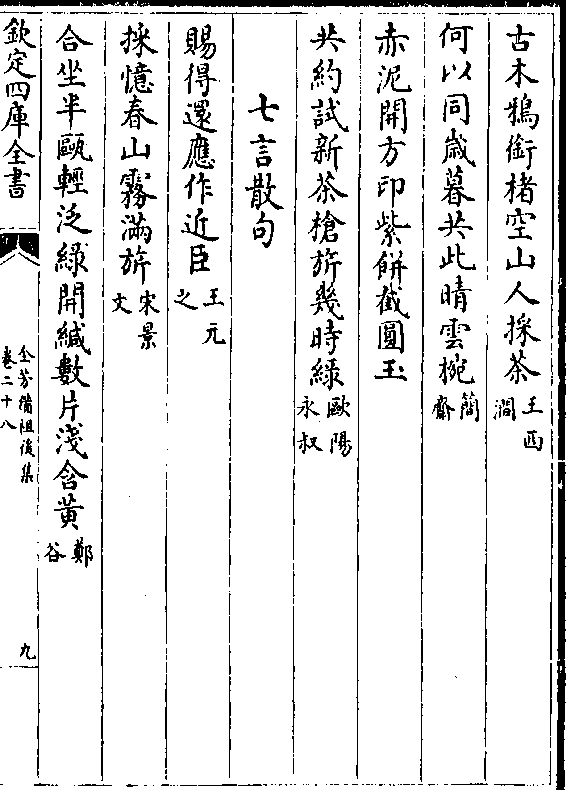 古木鵶銜楮空山人採茶王西澗
何以同歲暮共此晴雲椀簡齋
赤泥開方印紫餅截圓玉
共約試新茶槍旂幾時綠歐陽永叔
七言散句
賜得還應作近臣王元之
採憶春山霧滿旂宋景文
合坐半甌輕泛綠開緘數片淺含黃鄭谷
欽定四庫全書
全芳備祖後集
卷二十八
九